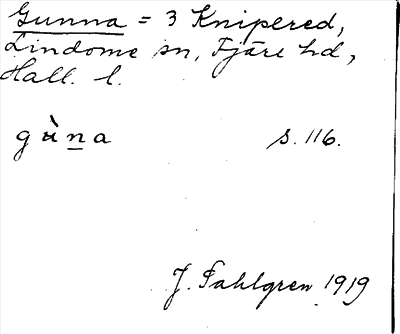 Gunna = 3 Knipered,
Lindome sn, Fjäre hd,
Hall. l.
gùna s. 116.
J. Fahlgren 1919